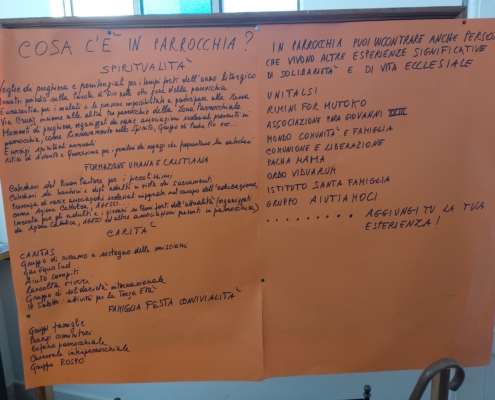 COSA C'È IN PARROCCHIA?
SPIRITUALITÀ
Veglie di preghiera e penitenziali per i tempi forti dell'anno liturgico
Incontri periodici sulla Parola di Dio nelle case
Eucarestia per i malati e le persone impossibilitate a partecipare alla Messa
Via Crucis insieme alle altre tre parrocchie della Zona Parrocchiale
Momenti di preghiera organizzati da varie associazioni ecclesiali presenti in
parrocchia, come Rinnovamento nello Spirito, Gruppo di Padre Pio ecc...
Esercizi spirituali annuali
Ritiri di Avvento e Quaresima per i genitori dei ragazzi che frequentano la catechesi
FORMAZIONE UMANA E CRISTIANA
Catechesi del Buon Pastore per i più piccoli
Catechesi dei bambini e degli adulti in vista dei sacramenti
Presenza di varie associazioni ecclesiali impegnate nel campo dell'educazione,
come Azione Cattolica, AGESCI.
Incontri per gli adulti e i giovani su temi forti dell'attualità (organizzati
da Azione Cattolica, AGESCI ed altre associazioni presenti in parrocchia)
CARITÀ
CARITAS
Gruppo di ricamo a sostegno delle missioni
Gas equo Sud
Aiuto compiti
Raccolta viveri
Gruppo di solidarietà internazionale
Il Sabato: attività per la Terza Età
FAMIGLIA FESTA CONVIVIALITÀ
Gruppi famiglie
Pranzi comunitari
Befana parrocchiale
Carnevale interparrocchiale
Gruppo ROSPO
IN PARROCCHIA PUOI INCONTRARE ANCHE PERSONE
CHE VIVONO ALTRE ESPERIENZE SIGNIFICATIVE
DI SOLIDARIETÀ E DI VITA ECCLESIALE
UNITALSI
RIMINI FOR MUTOKO
ASSOCIAZIONE PAPA GIOVANNI XXIII
MONDO COMUNITÀ E FAMIGLIA
COMUNIONE E LIBERAZIONE
PACHA MAMA
ORDO VIDUARUM
ISTITUTO SANTA FAMIGLIA
GRUPPO AIUTIAMOCI
......... AGGIUNGI TU LA TUA
ESPERIENZA!